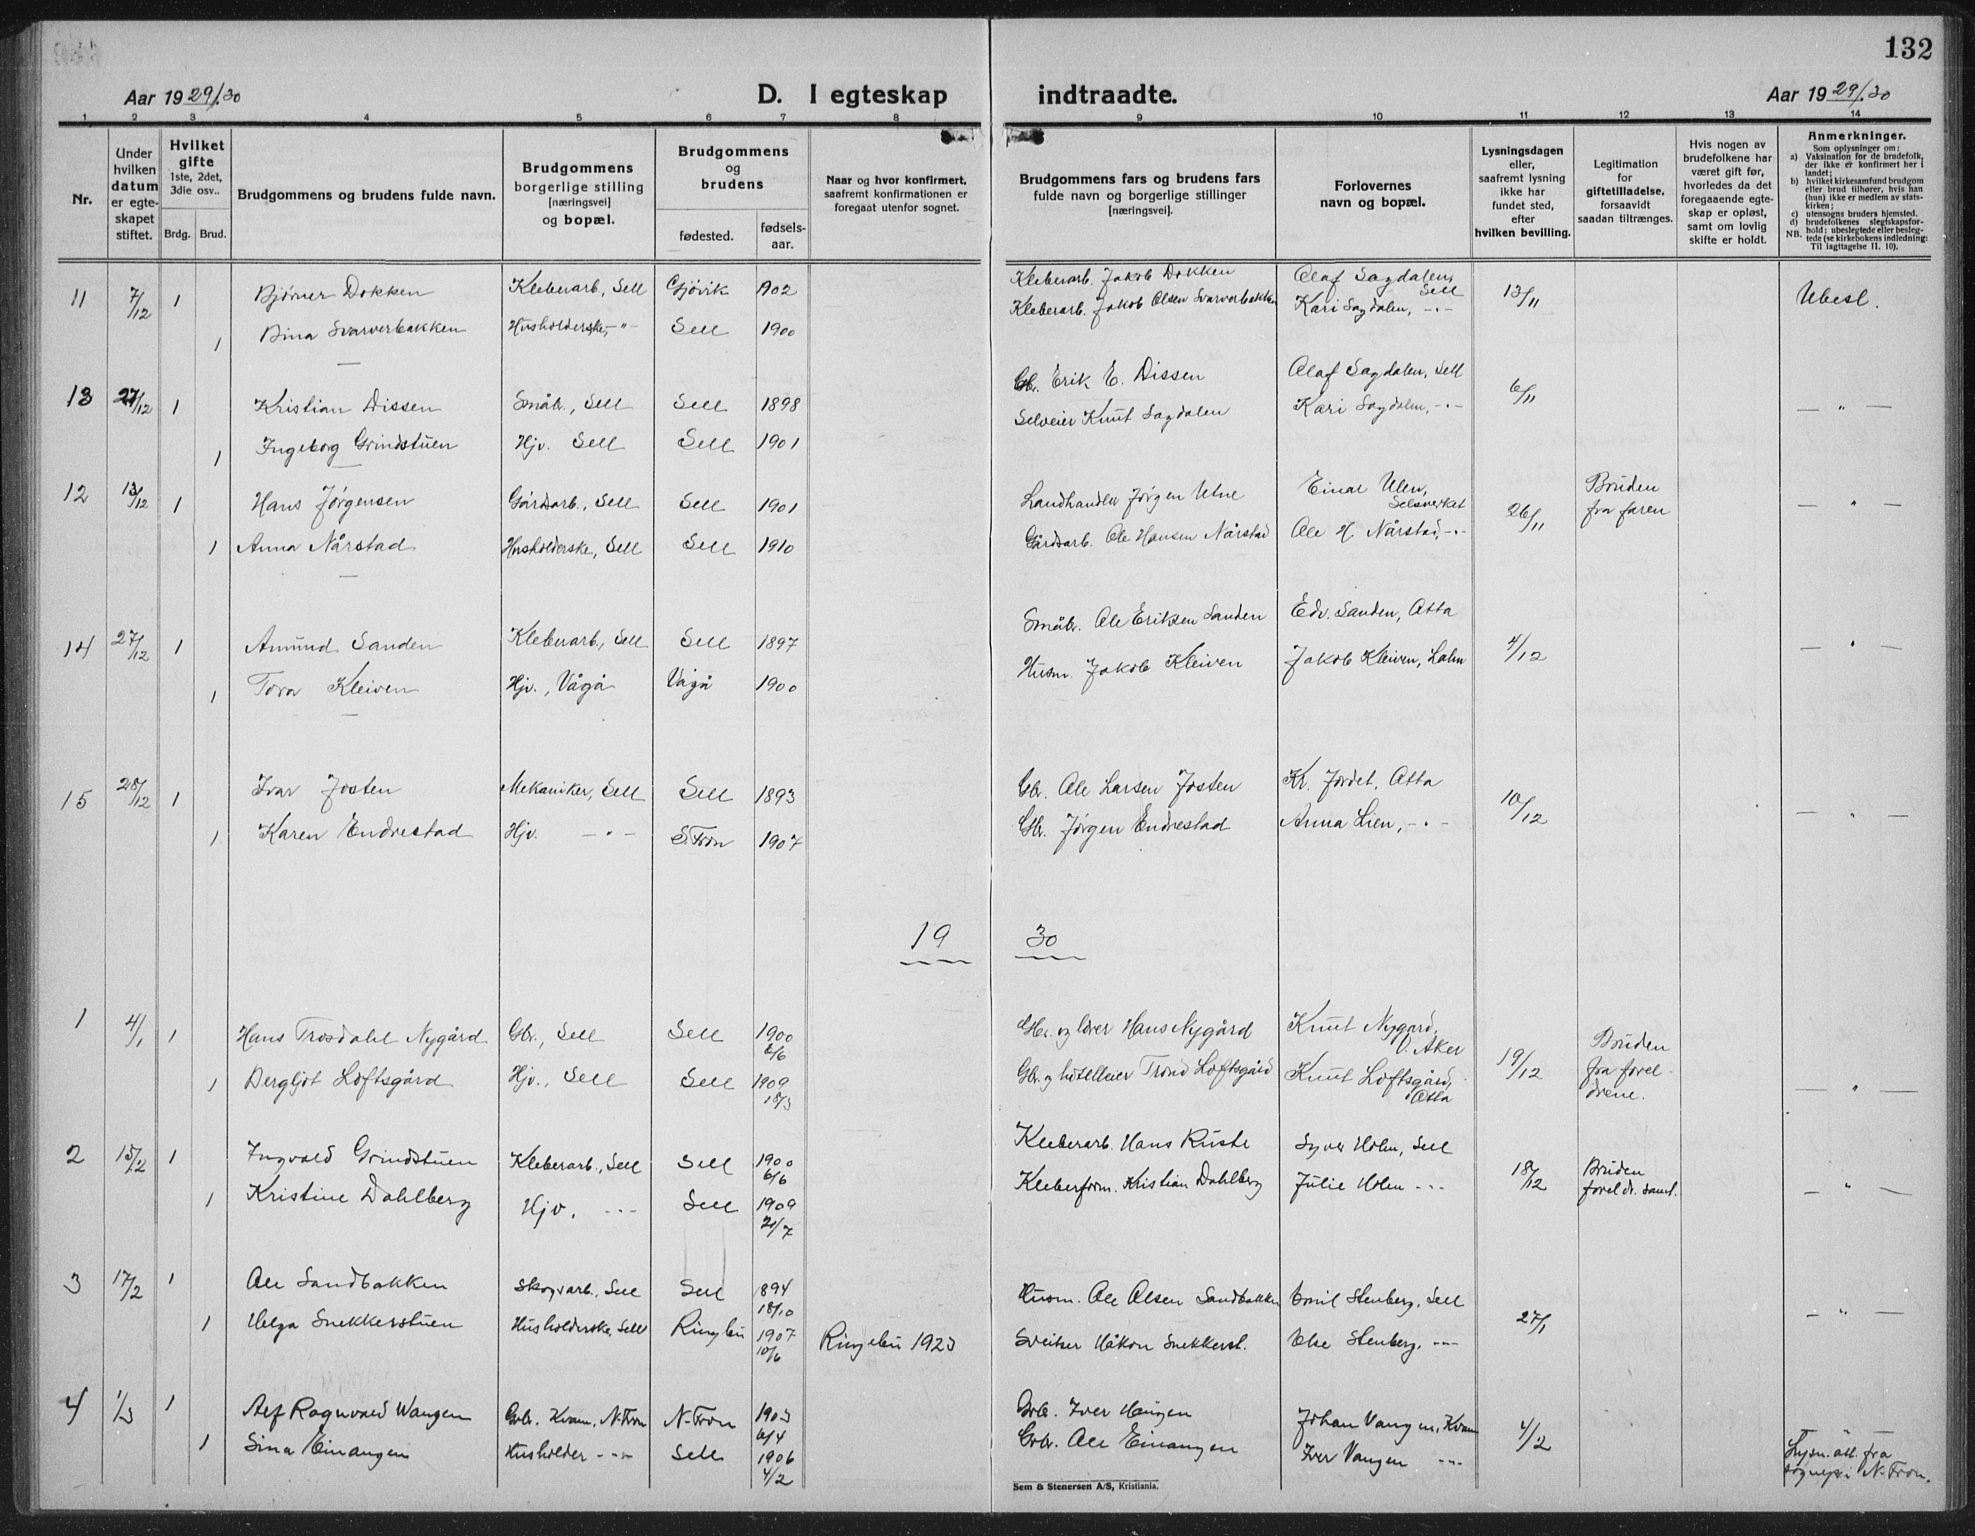 132
Aar 1929/30 D. I egteskap indtraadte. Aar 1929/30
1 2 3 4 5 6 7 8 9 10 11 12 13 14
Nr.
Under hvilken datum er egte-skapet stiftet.
Hvilket gifte 1ste, 2det, 3die osv..
Brdg. Brud.
Brudgommens og brudens fulde navn.
Brudgommens borgerlige stilling [næringsvei] og bopæl.
Brudgommens og brudens
fødested. fødsels-aar.
Naar og hvor konfirmert, saafremt konfirmationen er foregaat utenfor sognet.
Brudgommens fars og brudens fars fulde navn og borgerlige stillinger [næringsvei].
Forlovernes navn og bopæl.
Lysningsdagen eller, saafremt lysning ikke har fundet sted, efter hvilken bevilling.
Legitimation for giftetilladelse, forsaavidt saadan tiltrænges.
Hvis nogen av brudefolkene har været gift før, hvorledes da det foregaaende egte-skap er opløst, samt om lovlig skifte er holdt.
Anmerkninger.
Som oplysninger om:
a) Vaksination for de brudefolk, der ikke er konfirmert her i landet;
b) hvilket kirkesamfund brudgom eller brud tilhører, hvis han (hun) ikke er medlem av stats-kirken;
c) utensogns bruders hjemsted.
d) brudefolkenes slegtskapsfor-hold: ubeslegtede eller besleg-tede (se kirkebokens indledning:
NB. Til iagttagelse II. 10).
11 7/12 1 Bjørner Dokken Kleberarb., Sell Gjøvik 1902 Kleberarb. Jakob Dokken Olaf Sagdalen, Sell 13/11 Ubesl.
1 Bina Svarverbakken Husholderske, -"- Sell 1900 Kleberarb. Jakob Olsen Svarverbakken Kari Sagdalen, -"-
13 27/12 1 Kristian Dissen Småbr., Sell Sell 1898 Gbr. Erik E. Dissen Olaf Sagdalen, Sell 6/11 — " —
1 Ingeborg Grindstuen Hjv. Sell Sell 1901 Selveier Knut Sagdalen Kari Sagdalen, -"-
12 13/12 1 Hans Jørgensen Gårdarb., Sell Sell 1901 Landhandler Jørgen Utne Einar Ulen, Selsverket 26/11 Bruden fra faren — " —
1 Anna Nårstad Husholderske, Sell Sell 1910 Gårdsarb. Ole Hansen Nårstad Ole H. Nårstad, -"-
14 27/12 1 Amund Sanden Kleberarb., Sell Sell 1897 Småbr. Ole Eriksen Sanden Edv. Sanden, Otta 4/12 — " —
1 Tora Kleiven Hjv., Vågå Vågå 1900 Husm. Jakob Kleiven Jakob Kleiven, Lalm
15 28/12 1 Ivar Josten Mekaniker, Sell Sell 1893 Gbr. Ole Larsen Josten Kr. Jordet, Otta 10/12 — " —
1 Karen Endrestad Hjv. -"- S. Fron 1907 Gbr. Jørgen Endrestad Anna Lien, -"-
19 30
1 4/1 1 Hans Trosdahl Nygård Gbr., Sell Sell 1900 Gbr. og lærer Hans Nygård Knut Nygård, V. Aker 19/12 Bruden fra forel-drene. — " —
1 Bergljot Loftsgård Hjv., Sell Sell 1909 18/3 Gbr. og hotelleier Trond Loftsgård Knut Loftsgård, Otta
2 15/2 1 Ingvald Grindstuen Kleberarb., Sell Sell 1900 6/6 Kleberarb. Hans Ruste Syver Holm, Sell 18/12 Bruden foreldr. samt. — " —
1 Kristine Dahlberg Hjv. -"- Sell 1909 21/7 Kleberform. Kristian Dahlberg Julie Holm -"-
3 17/2 1 Ole Sandbakken Skogvarb., Sell Sell 1894 18/10 Husm. Ole Olsen Sandbakken Emil Stenberg, Sell 27/1 — " —
1 Helga Snekkerstuen Husholderske, Sell Ringebu 1907 10/6 Ringebu 1923 Sveitser Håkon Snekkerst. Else Stenberg, -"-
4 1/3 1 Alf Ragnvald Wangen Gbr. Kvam, N-Fron N-Fron 1903 6/4 Gbr. Iver Haugen Johan Vangen, Kvam 4/2 Lysn. att. fra sognepr. i N-Fron.
1 Sina Einangen Husholder -"- Sell 1906 4/2 Gbr. Ole Einangen Iver Vangen -"-
Sem & Stenersen A/S, Kristiania.